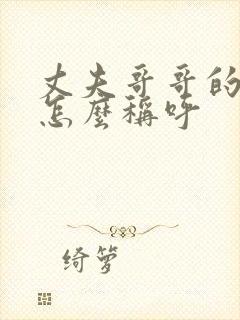 丈夫哥哥的
怎麼稱呼
绮萝